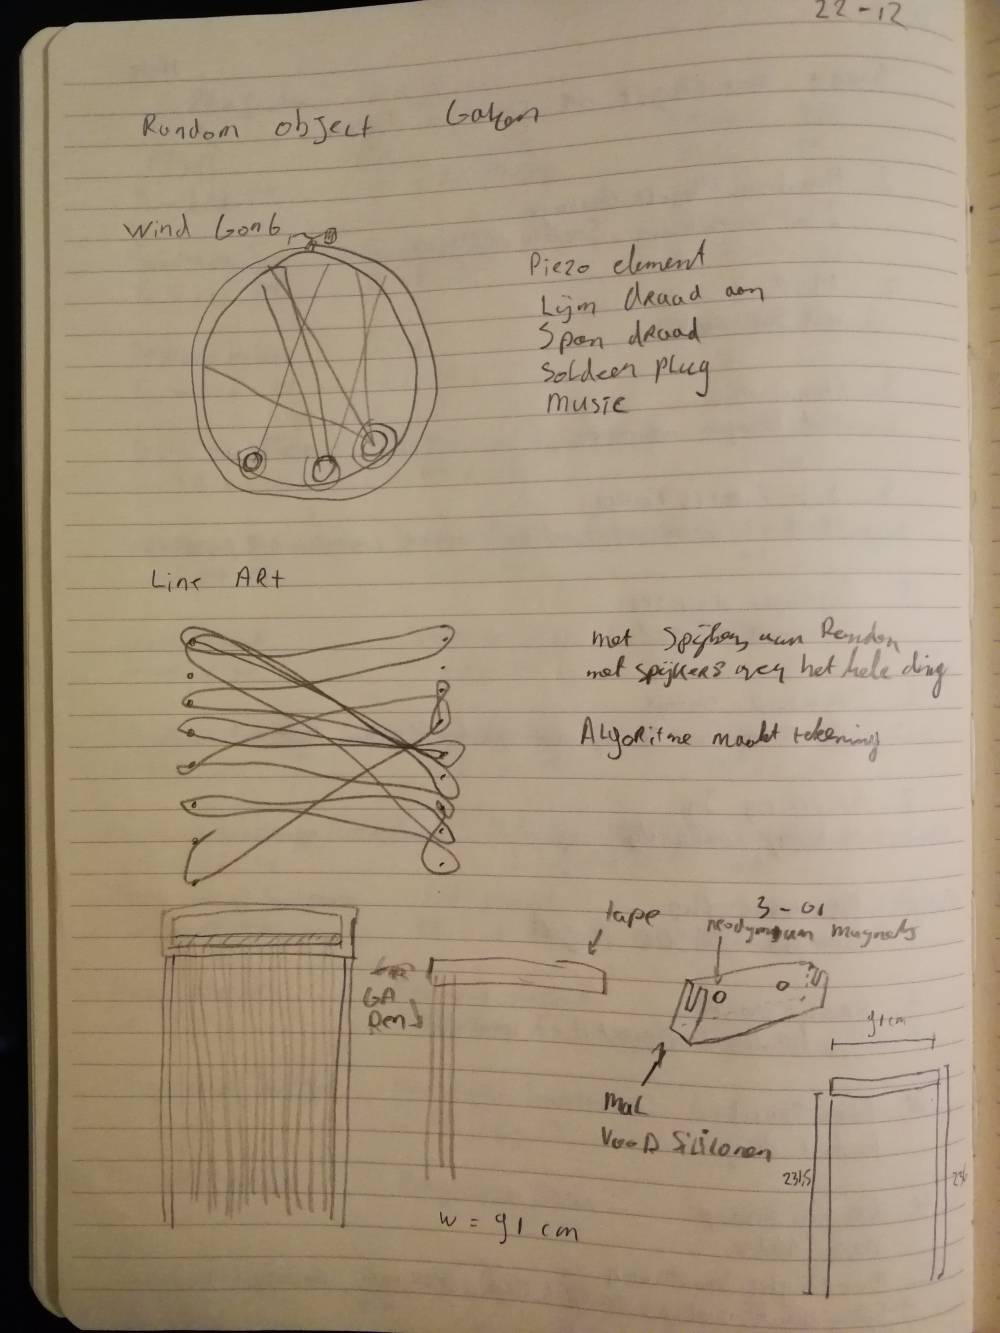 22-12
Random object
Wind Gong
Piezo element
Lijm draad aan
Span draad
Soldeer plug
Music
Line Art
met spijkers aan Randen
met spijkers over het hele ding
Algoritme maakt tekening
3-01
tape
neodymium magnets
GA
Ren
91 cm
Mal
Voor Siliconen
231,5
w = 91 cm